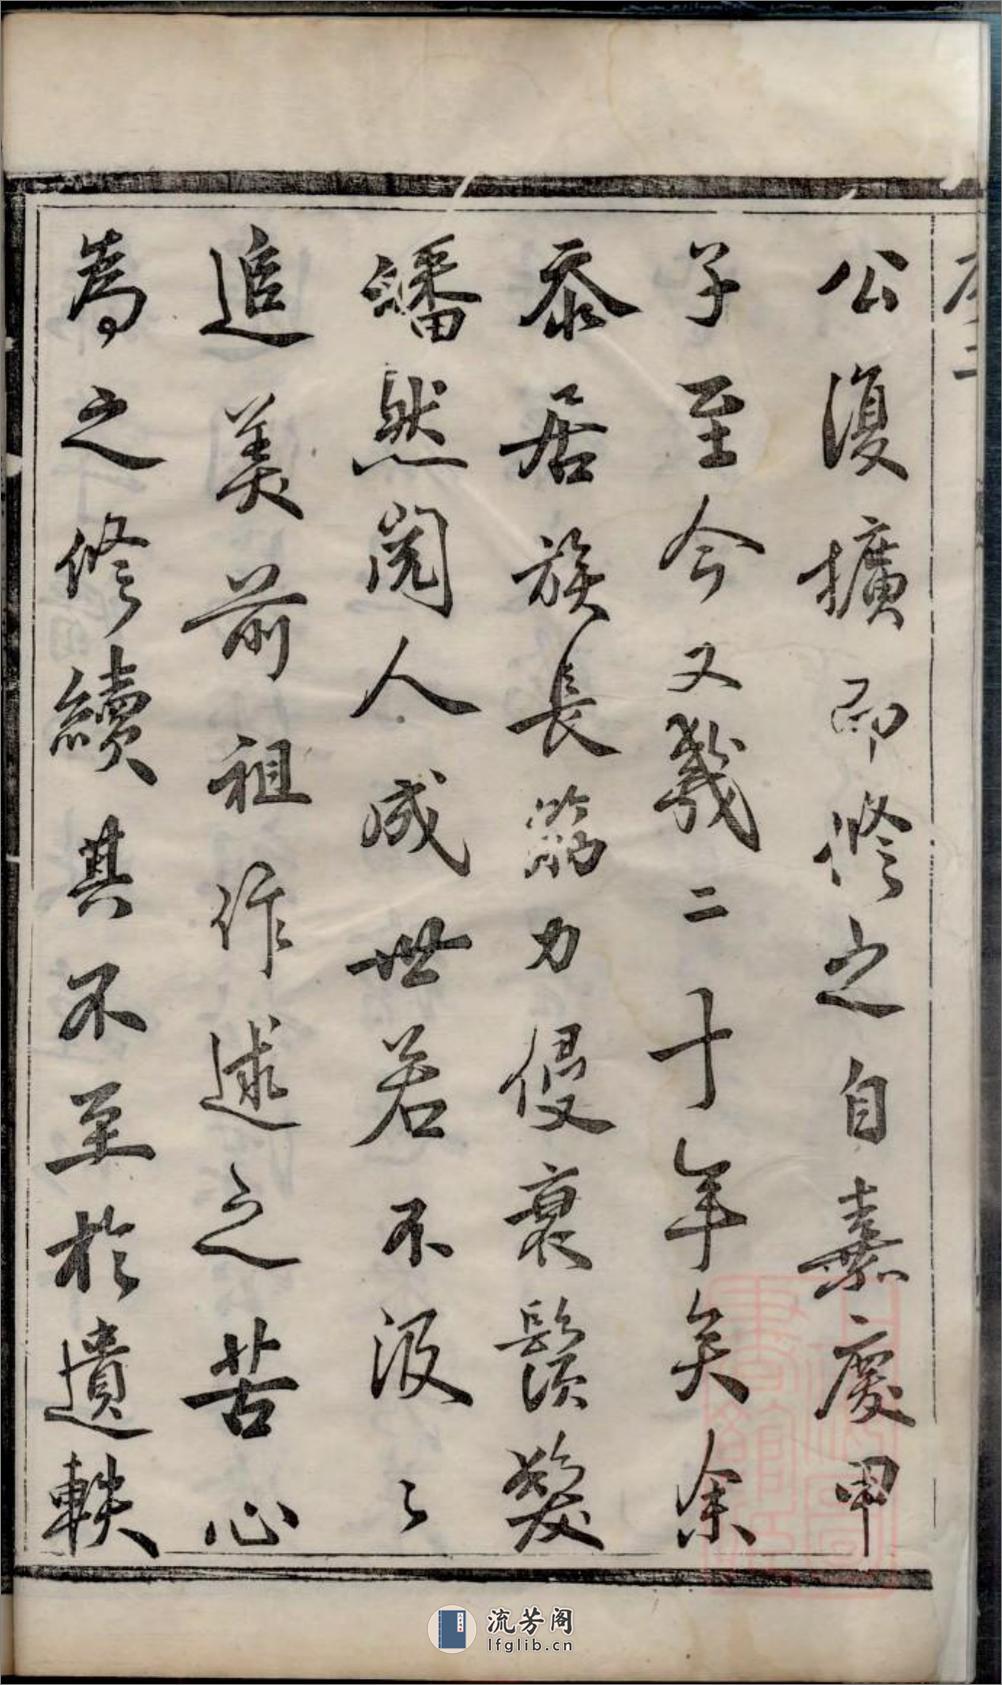 序 二
公復擴而修之自嘉慶甲
子至今又幾二十年矣余
忝居族長筋力侵衰鬚髮
皤然閱人成世若不汲〻
追美前祖作述之苦心
為之修續其不至於遺軼
流芳阁
lfglib.cn